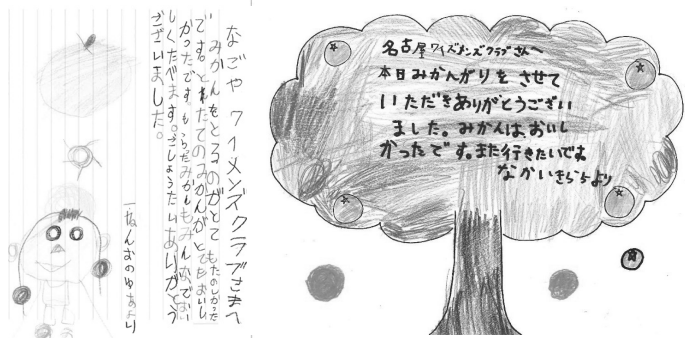 なごや ワイメンズクラブさまへ
みかんをとるのがとてもたのしかった
です。とれたてのみかんがとてもおいし
かったです。もらったみかんもみんなでおい
しくたべます。ごしょうたいありがとう
ございました。
一ねん より
名古屋ワイズメンズクラブさんへ
本日みかんがりを させて
いただきありがとうござい
ました。みかんは、おいし
かったです。また行きたいです。
なかいきららより